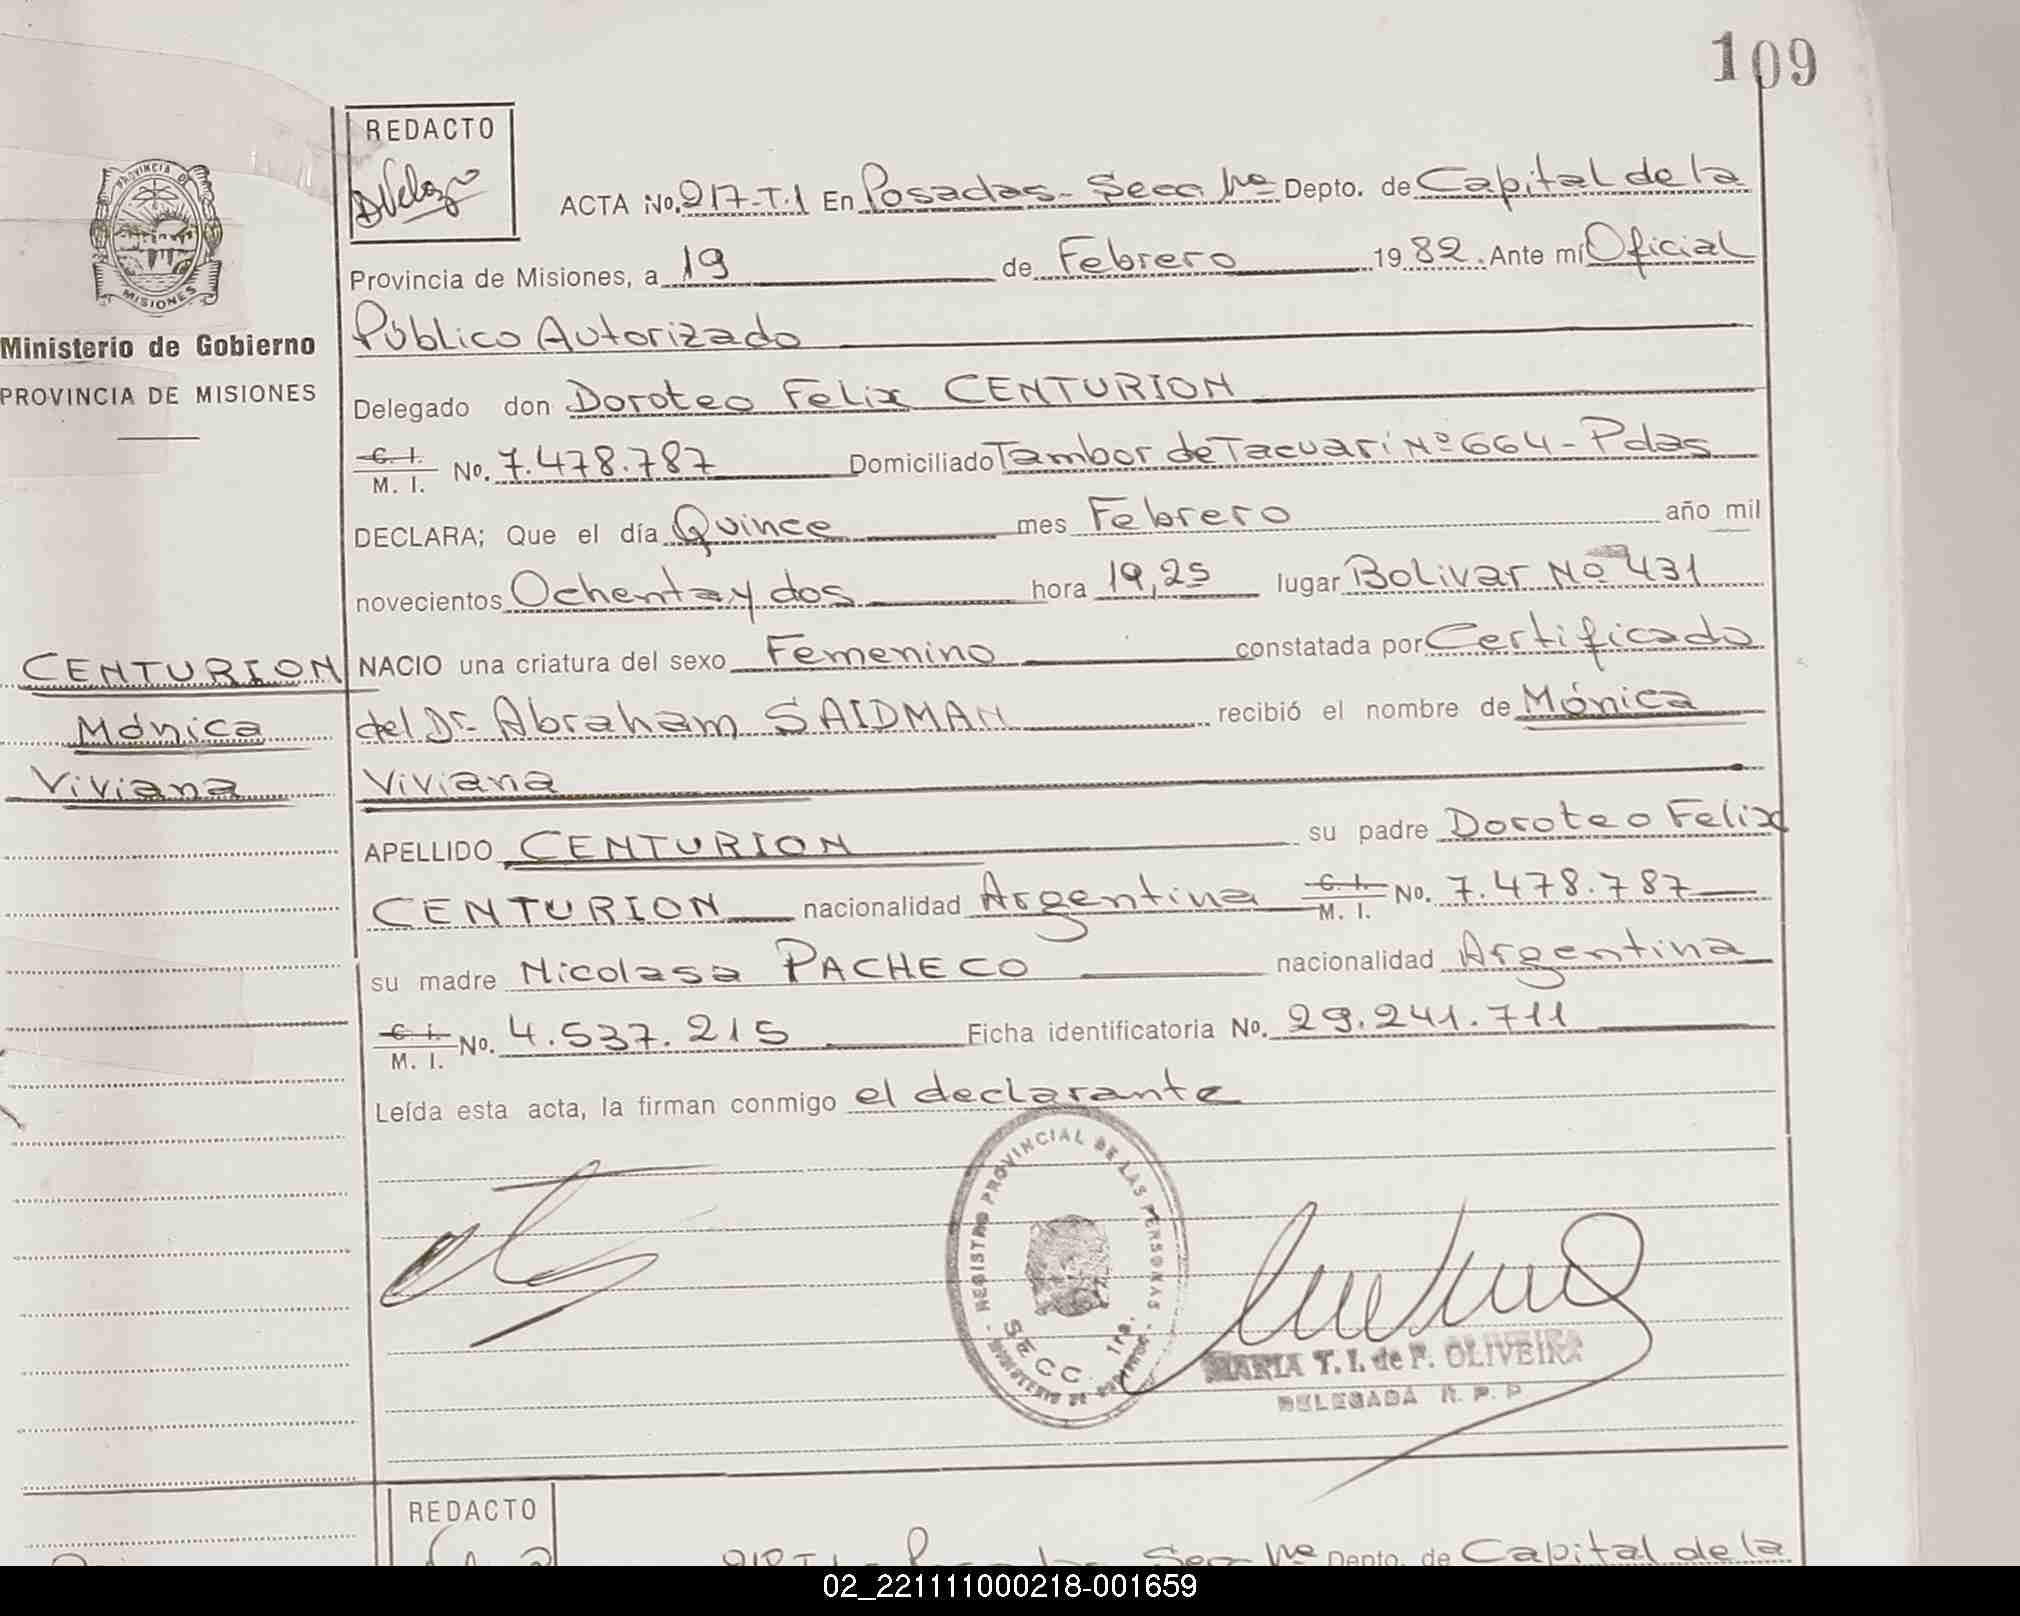 109
REDACTO
DVelozo
ACTA No. 217-T.1 En Posadas - Secc. 1ra Depto. de Capital de la
Provincia de Misiones, a 19 de Febrero 1982. Ante mí Oficial
Público Autorizado
Delegado don Doroteo Felix CENTURION
C. I. M. I. No. 7.478.787 Domiciliado Tambor de Tacuarí Nº 664 - Pdas
DECLARA; Que el día Quince mes Febrero año mil
novecientos Ochenta y dos hora 19,25 lugar Bolivar Nº 431
NACIO una criatura del sexo Femenino constatada por Certificado
del Dr. Abraham SAIDMAN recibió el nombre de Mónica
Viviana
APELLIDO CENTURION su padre Doroteo Felix
CENTURION nacionalidad Argentina C. I. M. I. No. 7.478.787
su madre Nicolasa PACHECO nacionalidad Argentina
C. I. M. I. No. 4.537.215 Ficha identificatoria No. 29.241.711
Leída esta acta, la firman conmigo el declarante
PROVINCIA DE MISIONES
Ministerio de Gobierno
PROVINCIA DE MISIONES
CENTURION
Mónica
Viviana
REGISTRO PROVINCIAL DE LAS PERSONAS
SECC. 1ra.
MINISTERIO DE GOBIERNO
MARIA T. I. de F. OLIVEIRA
DELEGADA R. P. P.
REDACTO
Depto. de Capital de la
02_221111000218-001659